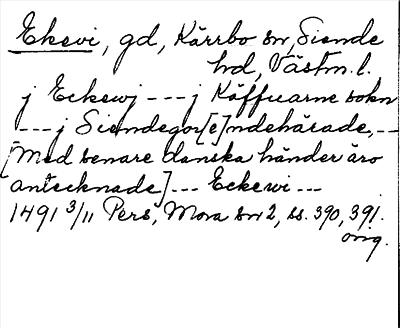 Ekevi, gd, Kärrbo sn, Siende
hd, Västm. l.
j Eckewj --- j Käffuarne sokn
--- j Siendegor[e]ndehärade, --
[Med senare danska händer äro
antecknade] --- Eckewi ---
1491 3/11 Pers, Mora sn 2, ss. 390, 391.
orig.